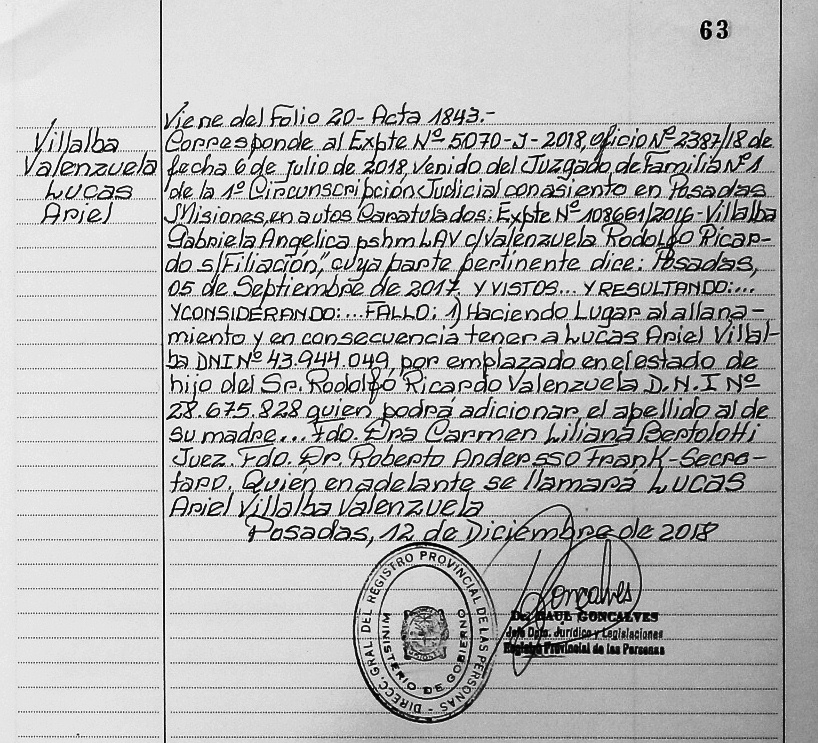 63
Villalba
Valenzuela
Lucas
Ariel
Viene del Folio 20- Acta 1843.-
Corresponde al Expte Nº 5070-J-2018, oficio Nº 2387/18 de
fecha 6 de julio de 2018, venido del Juzgado de Familia Nº 1
de la 1º Circunscripción Judicial con asiento en Posadas
Misiones, en autos Caratulados: Expte Nº 108661/2016-Villalba
Gabriela Angélica pshm LAV c/Valenzuela Rodolfo Ricar-
do s/Filiación", cuya parte pertinente dice: Posadas,
05 de Septiembre de 2017. Y VISTOS... Y RESULTANDO:...
Y CONSIDERANDO:... FALLO: 1) Haciendo Lugar al allana-
miento y en consecuencia tener a Lucas Ariel Villal-
ba DNI Nº 43.944.049, por emplazado en el estado de
hijo del Sr. Rodolfo Ricardo Valenzuela D.N.I Nº
28.675.828 quien podrá adicionar el apellido al de
su madre... Fdo. Dra Carmen Liliana Bertolotti
Juez. Fdo. Dr. Roberto Andersso Frank-Secre-
taro. Quien en adelante se llamará LUCAS
Ariel Villalba Valenzuela
Posadas, 12 de Diciembre de 2018
DIRECC. GRAL. DEL REGISTRO PROVINCIAL DE LAS PERSONAS -
MINISTERIO DE GOBIERNO
Goncalves
Dr. RAUL GONCALVES
Jefe Dpto. Jurídico y Legislaciones
Registro Provincial de las Personas